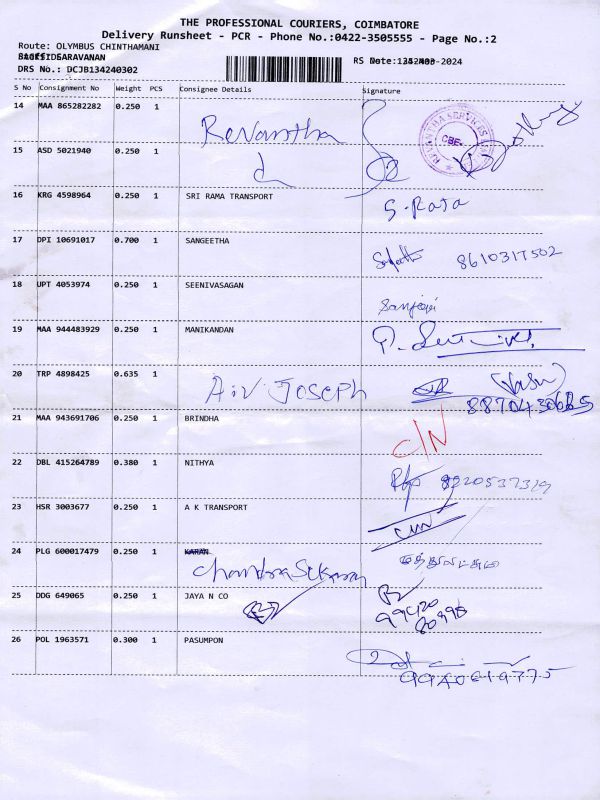 THE PROFESSIONAL COURIERS, COIMBATORE
Delivery Runsheet - PCR - Phone No.:0422-3505555 - Page No.:2
Route: OLYMBUS CHINTHAMANI
SARAVANAN
DRS No.: DCJB134240302
RS Date: -2024
S No Consignment No Weight PCS Consignee Details Signature
14 MAA 865282282 0.250 1 Revantha
REVANTHA SERVICES CBE.
15 ASD 5021940 0.250 1
16 KRG 4598964 0.250 1 SRI RAMA TRANSPORT S. Raja
17 DPI 10691017 0.700 1 SANGEETHA 8610317502
18 UPT 4053974 0.250 1 SEENIVASAGAN
19 MAA 944483929 0.250 1 MANIKANDAN
20 TRP 4898425 0.635 1 JOSEPH (Vasu)
21 MAA 943691706 0.250 1 BRINDHA C/N
22 DBL 415264789 0.380 1 NITHYA
23 HSR 3003677 0.250 1 A K TRANSPORT
24 PLG 600017479 0.250 1 KARAN
Chandra Sekaran
25 DDG 649065 0.250 1 JAYA N CO 99420
80998
26 POL 1963571 0.300 1 PASUMPON